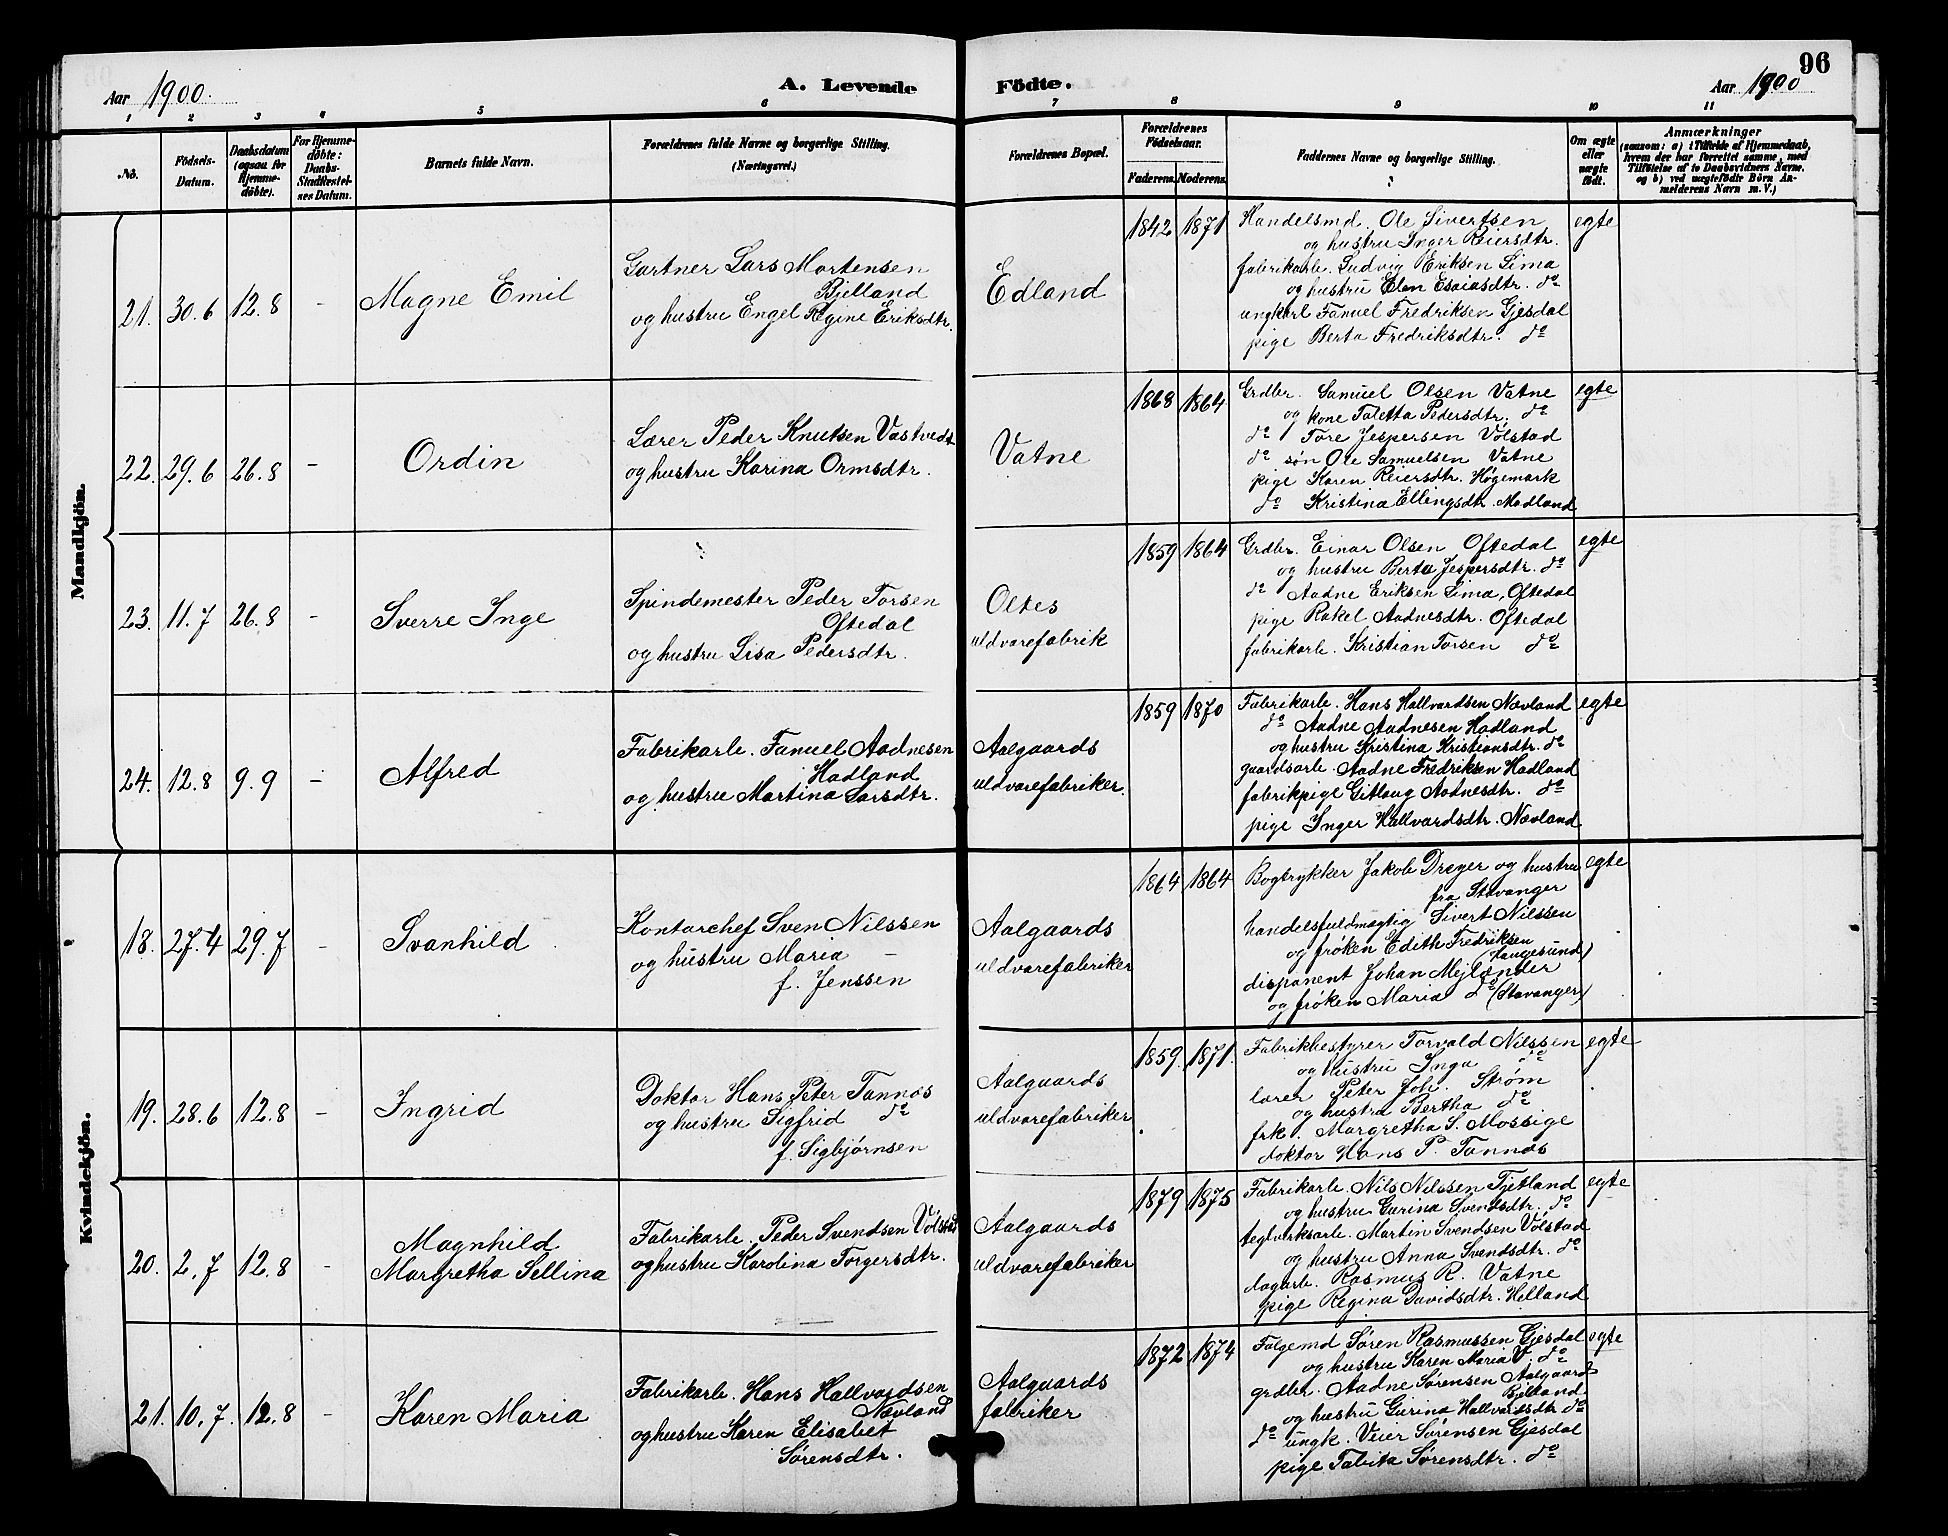 96
Aar 1900.
A. Levende Födte.
Aar 1900
1 2 3 4 5 6 7 8 9 10 11
No.
Födsels-
Datum.
Daabsdatum
(ogsaa for
Hjemme-
döbte).
For Hjemme-
döbte:
Daabs-
Stadfæstel-
ses Datum.
Barnets fulde Navn.
Forældrenes fulde Navne og borgerlige Stilling.
(Næringsvei.)
Forældrenes Bopæl.
Forældrenes
Födselsaar.
Faderens. Moderens.
Faddernes Navne og borgerlige Stilling.
Om ægte
eller
uægte
födt.
Anmærkninger
(saasom: a) i Tilfælde af Hjemmedaab,
hvem der har forrettet samme, med
Tilföielse af to Daabsvidners Navne.
og b) ved uægtefödte Börn An-
melderens Navn m. V.)
Mandkjön.
21. 30.6 12.8 -
Magne Emil
Gartner Lars Mortensen
Bjelland
og hustru Engel Regine Eriksdtr.
Edland
1842 1871
Handelsmd. Ole Sivertsen
og hustru Inger Reiersdtr.
fabrikarb. Ludvig Eriksen Lima
og hustru Elen Esaiasdtr. do
ungkarl Fanuel Fredriksen Gjesdal
pige Berta Fredriksdtr. do
egte
22. 29.6 26.8 -
Ordin
Lærer Peder Knutsen Vastvedt
og hustru Karina Ormsdtr.
Vatne
1868 1864
Grdbr. Samuel Olsen Vatne
og kone Taletta Pedersdtr. do
do Tore Jespersen Vølstad
do søn Ole Samuelsen Vatne
pige Karen Reiersdtr. Høgemark
do Kristina Ellingsdtr. Madland
egte
23. 11.7 26.8 -
Sverre Inge
Spindemester Peder Torsen
Oftedal
og hustru Lisa Pedersdtr.
Oltes
uldvarefabrik
1859 1864
Grdbr. Einar Olsen Oftedal
og hustru Berta Jespersdtr. do
do Aadne Eriksen Lima, Oftedal
pige Rakel Aadnesdtr. Oftedal
fabrikarb. Kristian Torsen do
egte
24. 12.8 9.9 -
Alfred
Fabrikarb. Fanuel Aadnesen
Hadland
og hustru Martina Larsdtr.
Aalgaards
uldvarefabriker.
1859 1870
Fabrikarb. Hans Hallvardsen Nævland
do Aadne Aadnesen Hadland
og hustru Kristina Kristiansdtr. do
gaardsarb. Aadne Fredriksen Hadland
fabrikpige Gitlaug Aadnesdtr. do
pige Inger Hallvardsdtr. Nævland
egte
Kvindekjön.
18. 27.4 29.7 -
Svanhild
Kontorchef Sven Nilssen
og hustru Maria -
f. Jenssen
Aalgaards
uldvarefabriker
1864 1864
Bogtrykker Jakob Dreyer og hustru
fra Stavanger
handelsfuldmægtig Sivert Nilssen
og frøken Edith Fredriksen
(Haugesund)
disponent Johan Mejlænder
og frøken Maria do (Stavanger)
egte
19. 28.6 12.8 -
Ingrid
Doktor Hans Peter Tannæs
og hustru Sigfrid do
f. Sigbjørnsen
Aalgaards
uldvarefabriker
1859. 1871.
Fabrikbestyrer Torvald Nilssen
og hustru Inga do
lærer Peter Joh. Strøm
og hustru Bertha do
frk. Margretha S. Mossige
doktor Hans P. Tannæs
egte
20. 2.7 12.8 -
Magnhild
Margretha Sellina
Fabrikarb. Peder Svendsen Vølstad
og hustru Karolina Torgersdtr.
Aalgaards
uldvarefabriker
1879 1875
Fabrikarb. Nils Nilssen Tjetland
og hustru Gurina Svendsdtr. do
teglverksarb. Martin Svendsen Vølstad
og hustru Anna Svendsdtr. do
dagarb. Rasmus R. Vatne
pige Regina Davidsdtr. Helland
egte
21. 10.7. 12.8 -
Karen Maria
Fabrikarb. Hans Hallvardsen
Nævland
og hustru Karen Elisabet
Sørensdtr.
Aalgaards
fabriker
1872 1874
Følgemd Søren Rasmussen Gjesdal
og hustru Karen Maria V. do
grdbr. Aadne Sørensen Aalgaard
Bjelland
og hustru Gurina Hallvardsdtr do
do ungk. Veier Sørensen Gjesdal
pige Tabita Sørensdtr. do
egte